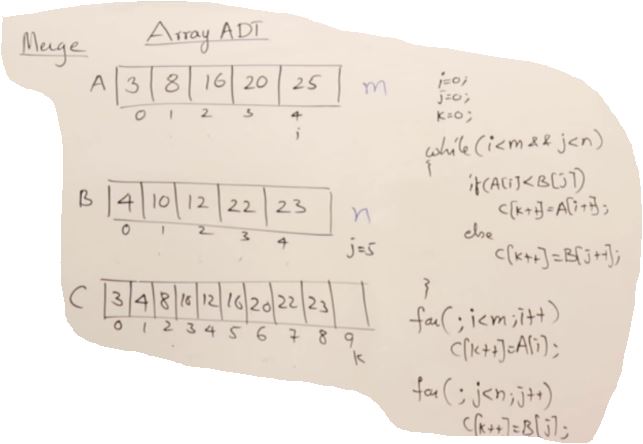 Array ADT
Merge
A 3 8 16 20 25 m
0 1 2 3 4
i
B 4 10 12 22 23 n
0 1 2 3 4 j=5
C 3 4 8 10 12 16 20 22 23
0 1 2 3 4 5 6 7 8 9
k
i=0;
j=0;
k=0;
while(i<m && j<n)
{
if(A[i]<B[j])
C[k++]=A[i++];
else
C[k++]=B[j++];
}
for(; i<m; i++)
C[k++]=A[i];
for(; j<n; j++)
C[k++]=B[j];